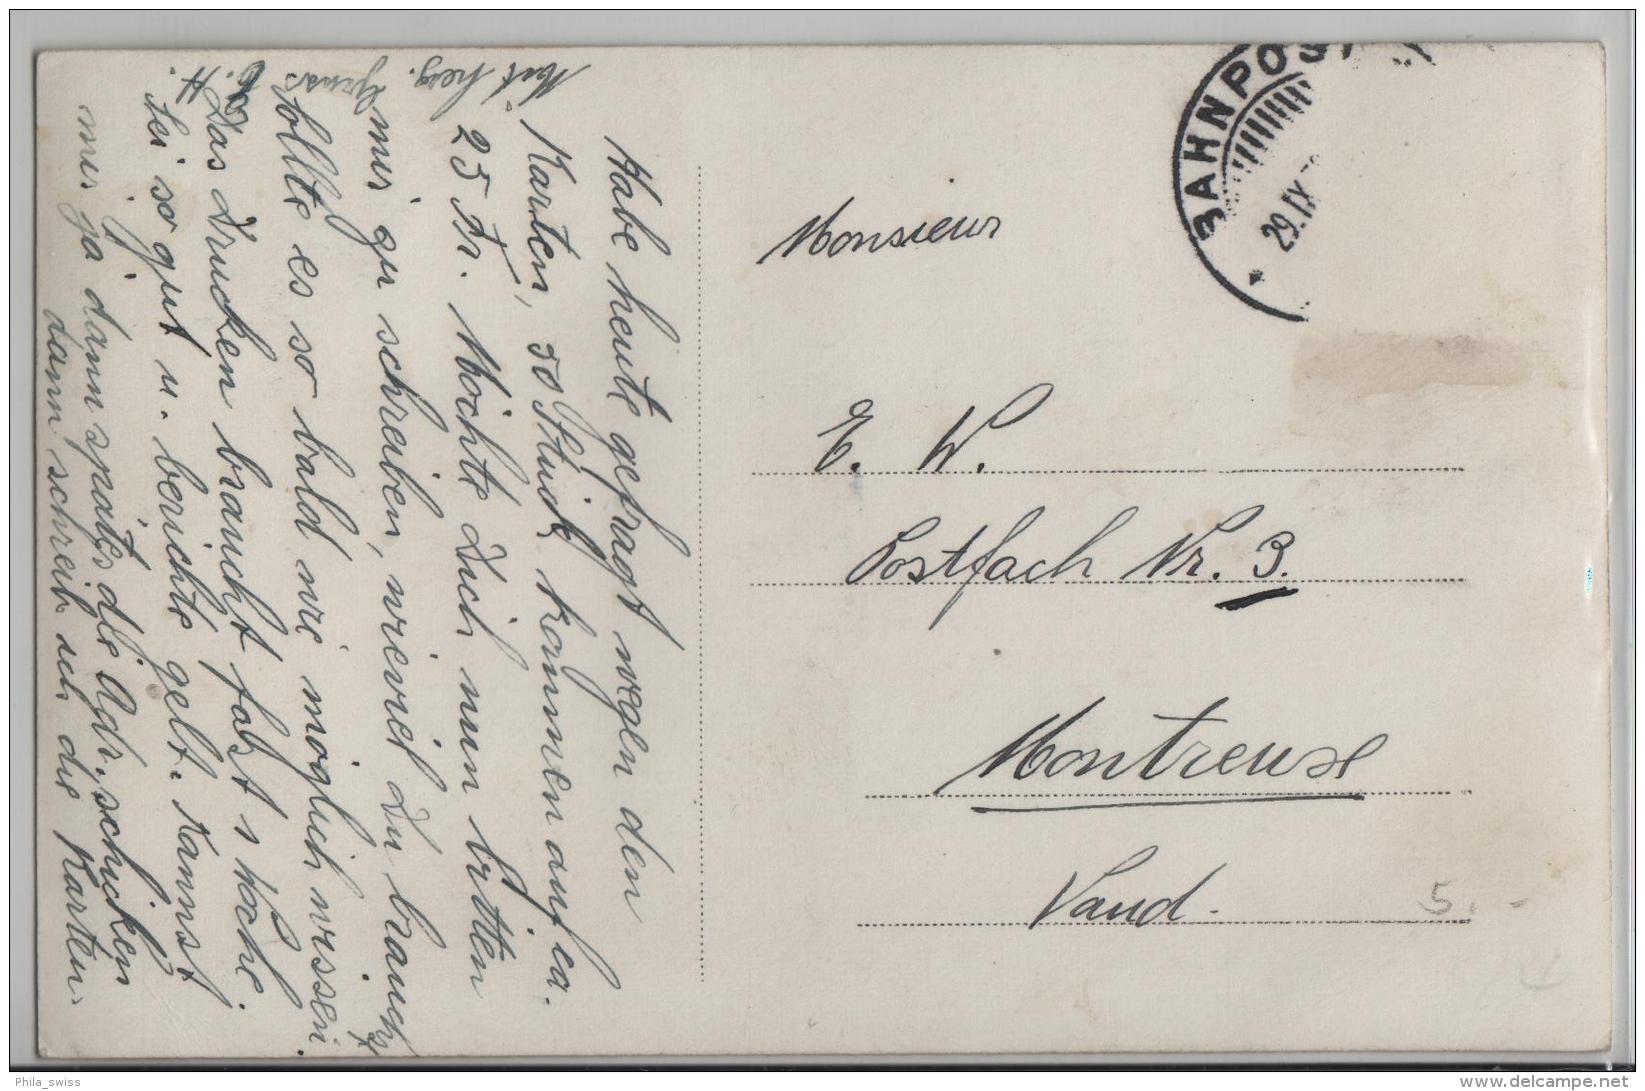 Habe heute gefragt wegen den
Karten, 50 Stück kommen auf ca.
25 Fr. Möchte Dich nun bitten
mir zu schreiben, wieviel Du brauchst
sollte es so bald wie möglich wissen.
Das Drucken braucht fast 1 Woche.
Sei so gut u. berichte gelt. Kannst
mir ja dann später die Adr. schicken
dann schreib ich die Karten.
Mit herzg. Gruss
H.
BAHNPOST
29.IX
Monsieur
E. W.
Postfach Nr. 3.
Montreux
Vaud.
5.-
Phila_swiss
delcampe.net